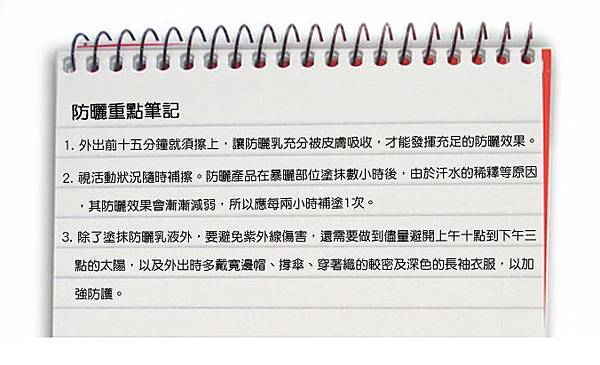 防曬重點筆記
1. 外出前十五分鐘就須擦上，讓防曬乳充分被皮膚吸收，才能發揮充足的防曬效果。
2. 視活動狀況隨時補擦。防曬產品在暴曬部位塗抹數小時後，由於汗水的稀釋等原因
，其防曬效果會漸漸減弱，所以應每兩小時補塗1次。
3. 除了塗抹防曬乳液外，要避免紫外線傷害，還需要做到儘量避開上午十點到下午三
點的太陽，以及外出時多戴寬邊帽、撐傘、穿著織的較密及深色的長袖衣服，以加
強防護。